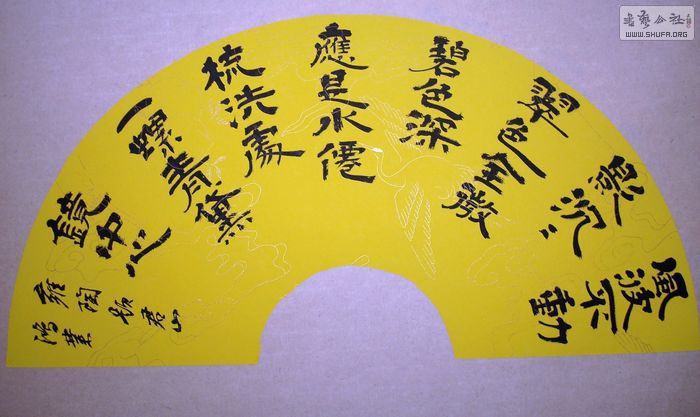 風波不動
影沉〻
翠色全微
碧色深
應是水僊
梳洗處
一螺青黛
鏡中心
雍陶題君山
鴻業
書藝公社
WWW.SHUFA.ORG